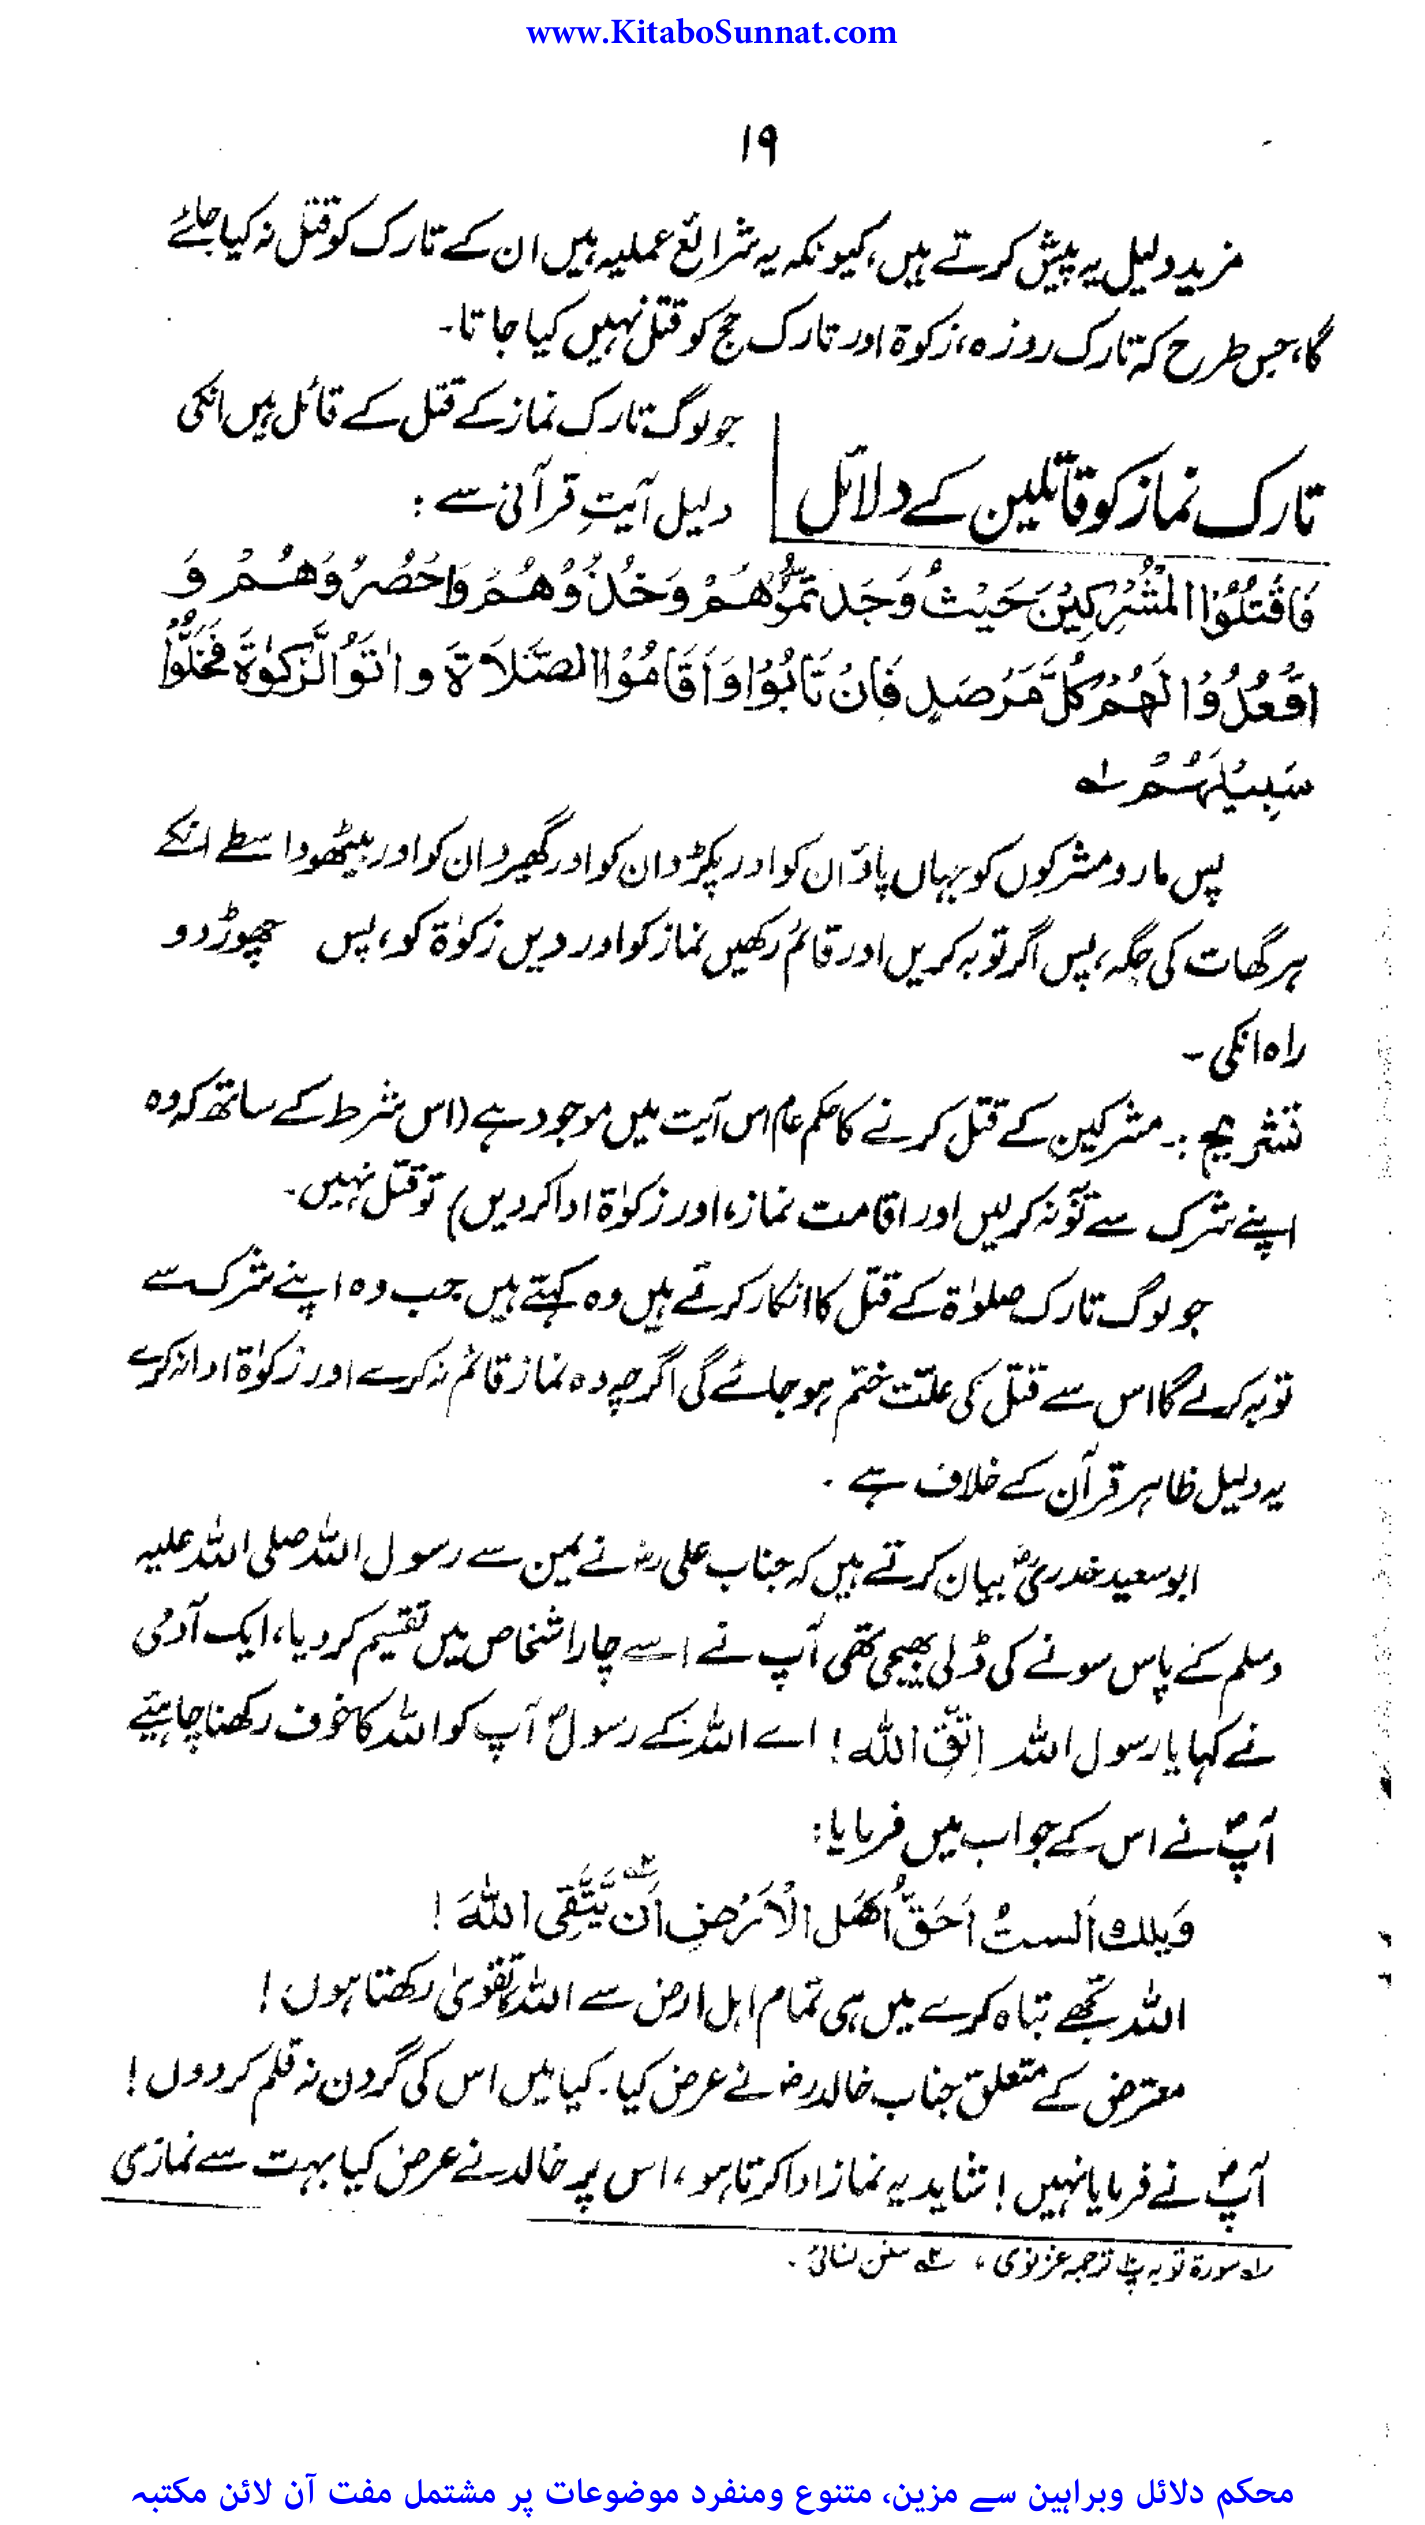 www.KitaboSunnat.com
۱۹
مزید دلیل یہ پیش کرتے ہیں، کیونکہ یہ شرائع عملیہ ہیں ان کے تارک کو قتل نہ کیا جائے
گا، جس طرح کہ تارک روزہ، زکوۃ اور تارک حج کو قتل نہیں کیا جاتا۔
تارک نماز کو قاتلین کے دلائل
جو لوگ تارک نماز کے قتل کے قائل ہیں انکی
دلیل آیتِ قرآنی سے :
فَاقْتُلُوْا الْمُشْرِكِيْنَ حَيْثُ وَجَدتُّمُوْهُمْ وَخُذُوْهُمْ وَاحْصُرُوْهُمْ وَ
اقْعُدُوْا لَهُمْ كُلَّ مَرْصَدٍ فَاِنْ تَابُوْا وَاَقَامُوْا الصَّلَاةَ وَاٰتَوُا الزَّكٰوةَ فَخَلُّوْا
سَبِيْلَهُمْ ۱ه
پس مارو مشرکوں کو جہاں پاؤ ان کو اور پکڑو ان کو اور گھیرو ان کو اور بیٹھو واسطے انکے
ہر گھات کی جگہ، پس اگر توبہ کریں اور قائم رکھیں نماز کو اور دیں زکوٰۃ کو، پس چھوڑ دو
راہ انکی ۔
تشریح :۔ مشرکین کے قتل کرنے کا حکم عام اس آیت میں موجود ہے (اس شرط کے ساتھ کہ وہ
اپنے شرک سے توبہ کرلیں اور اقامت نماز، اور زکوٰۃ ادا کردیں) تو قتل نہیں۔
جو لوگ تارک صلوٰۃ کے قتل کا انکار کرتے ہیں وہ کہتے ہیں جب وہ اپنے شرک سے
توبہ کرلے گا اس سے قتل کی علّت ختم ہو جائے گی اگرچہ وہ نماز قائم نہ کرے اور زکوٰۃ ادا نہ کرے
یہ دلیل ظاہر قرآن کے خلاف ہے ۔
ابو سعید خدریؓ بیان کرتے ہیں کہ جناب علی رضؓ نے یمن سے رسول اللہ صلی اللہ علیہ
وسلم کے پاس سونے کی ڈلی بھیجی تھی آپ نے اسے چار اشخاص میں تقسیم کر دیا، ایک آدمی
نے کہا یا رسول اللہ اِتَّقِ اللہ! اے اللہ کے رسولؐ آپ کو اللہ کا خوف رکھنا چاہئیے
آپؐ نے اس کے جواب میں فرمایا:
وَيلك اَلستُ اَحَقَّ اَهْلِ الْاَرْضِ اَنْ يَّتَّقِى اللّٰهَ ۲ه !
اللہ تجھے تباہ کرے میں ہی تمام اہل ارض سے اللہ کا تقویٰ رکھتا ہوں !
معترض کے متعلق جناب خالد رضؓ نے عرض کیا۔ کیا میں اس کی گردن نہ قلم کردوں !
آپؐ نے فرمایا نہیں ! شاید یہ نماز ادا کرتا ہو، اس پر خالد نے عرض کیا بہت سے نمازی
۱ه سورۃ توبہ پ۱۰ ترجمہ غزنوی ، ۲ه سنن نسائی ۔
محکم دلائل وبراہین سے مزین، متنوع ومنفرد موضوعات پر مشتمل مفت آن لائن مکتبہ